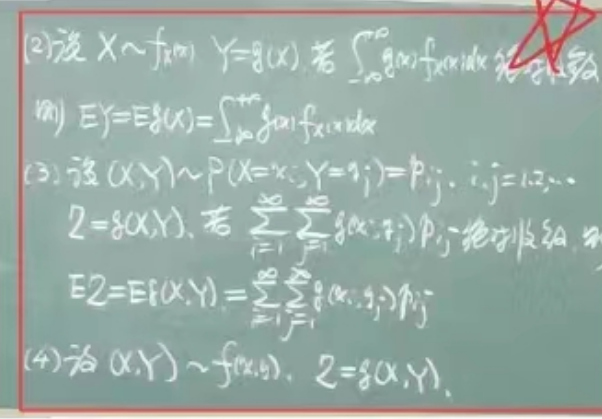 (2) 设 X~f_X(x) Y=g(X). 若 ∫_{-∞}^{+∞} g(x) f_X(x)dx 绝对收敛
则 EY=Eg(X)=∫_{-∞}^{+∞} g(x) f_X(x)dx
(3) 设 (X,Y)~P(X=x_i, Y=y_j)=p_{ij}. i,j=1,2,...
Z=g(X,Y). 若 ∑_{i=1}^{∞} ∑_{j=1}^{∞} g(x_i,y_j) p_{ij} 绝对收敛, 则
EZ=Eg(X,Y)=∑_{i=1}^{∞} ∑_{j=1}^{∞} g(x_i,y_j) p_{ij}
(4) 设 (X,Y)~f(x,y). Z=g(X,Y).